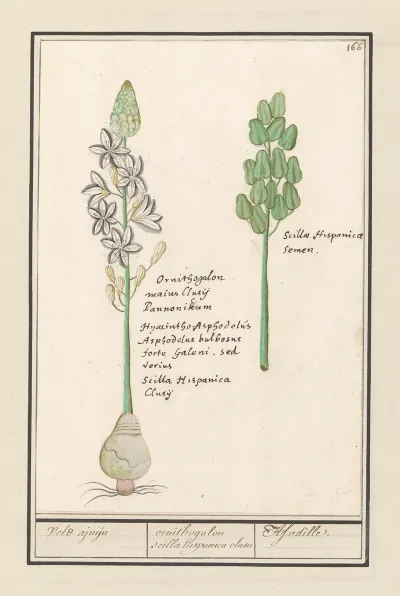 166
Ornithogalon
maius Clusij
Pannonikum
Hyacintho-Asphodelus
Asphodelus bulbosus
forte Galeni. sed
verius
Scilla Hispanica
Clusij
Scillæ Hispanicæ
Semen.
Veld ajuijn
ornithogalon
scilla hispanica clusii
Affodilles